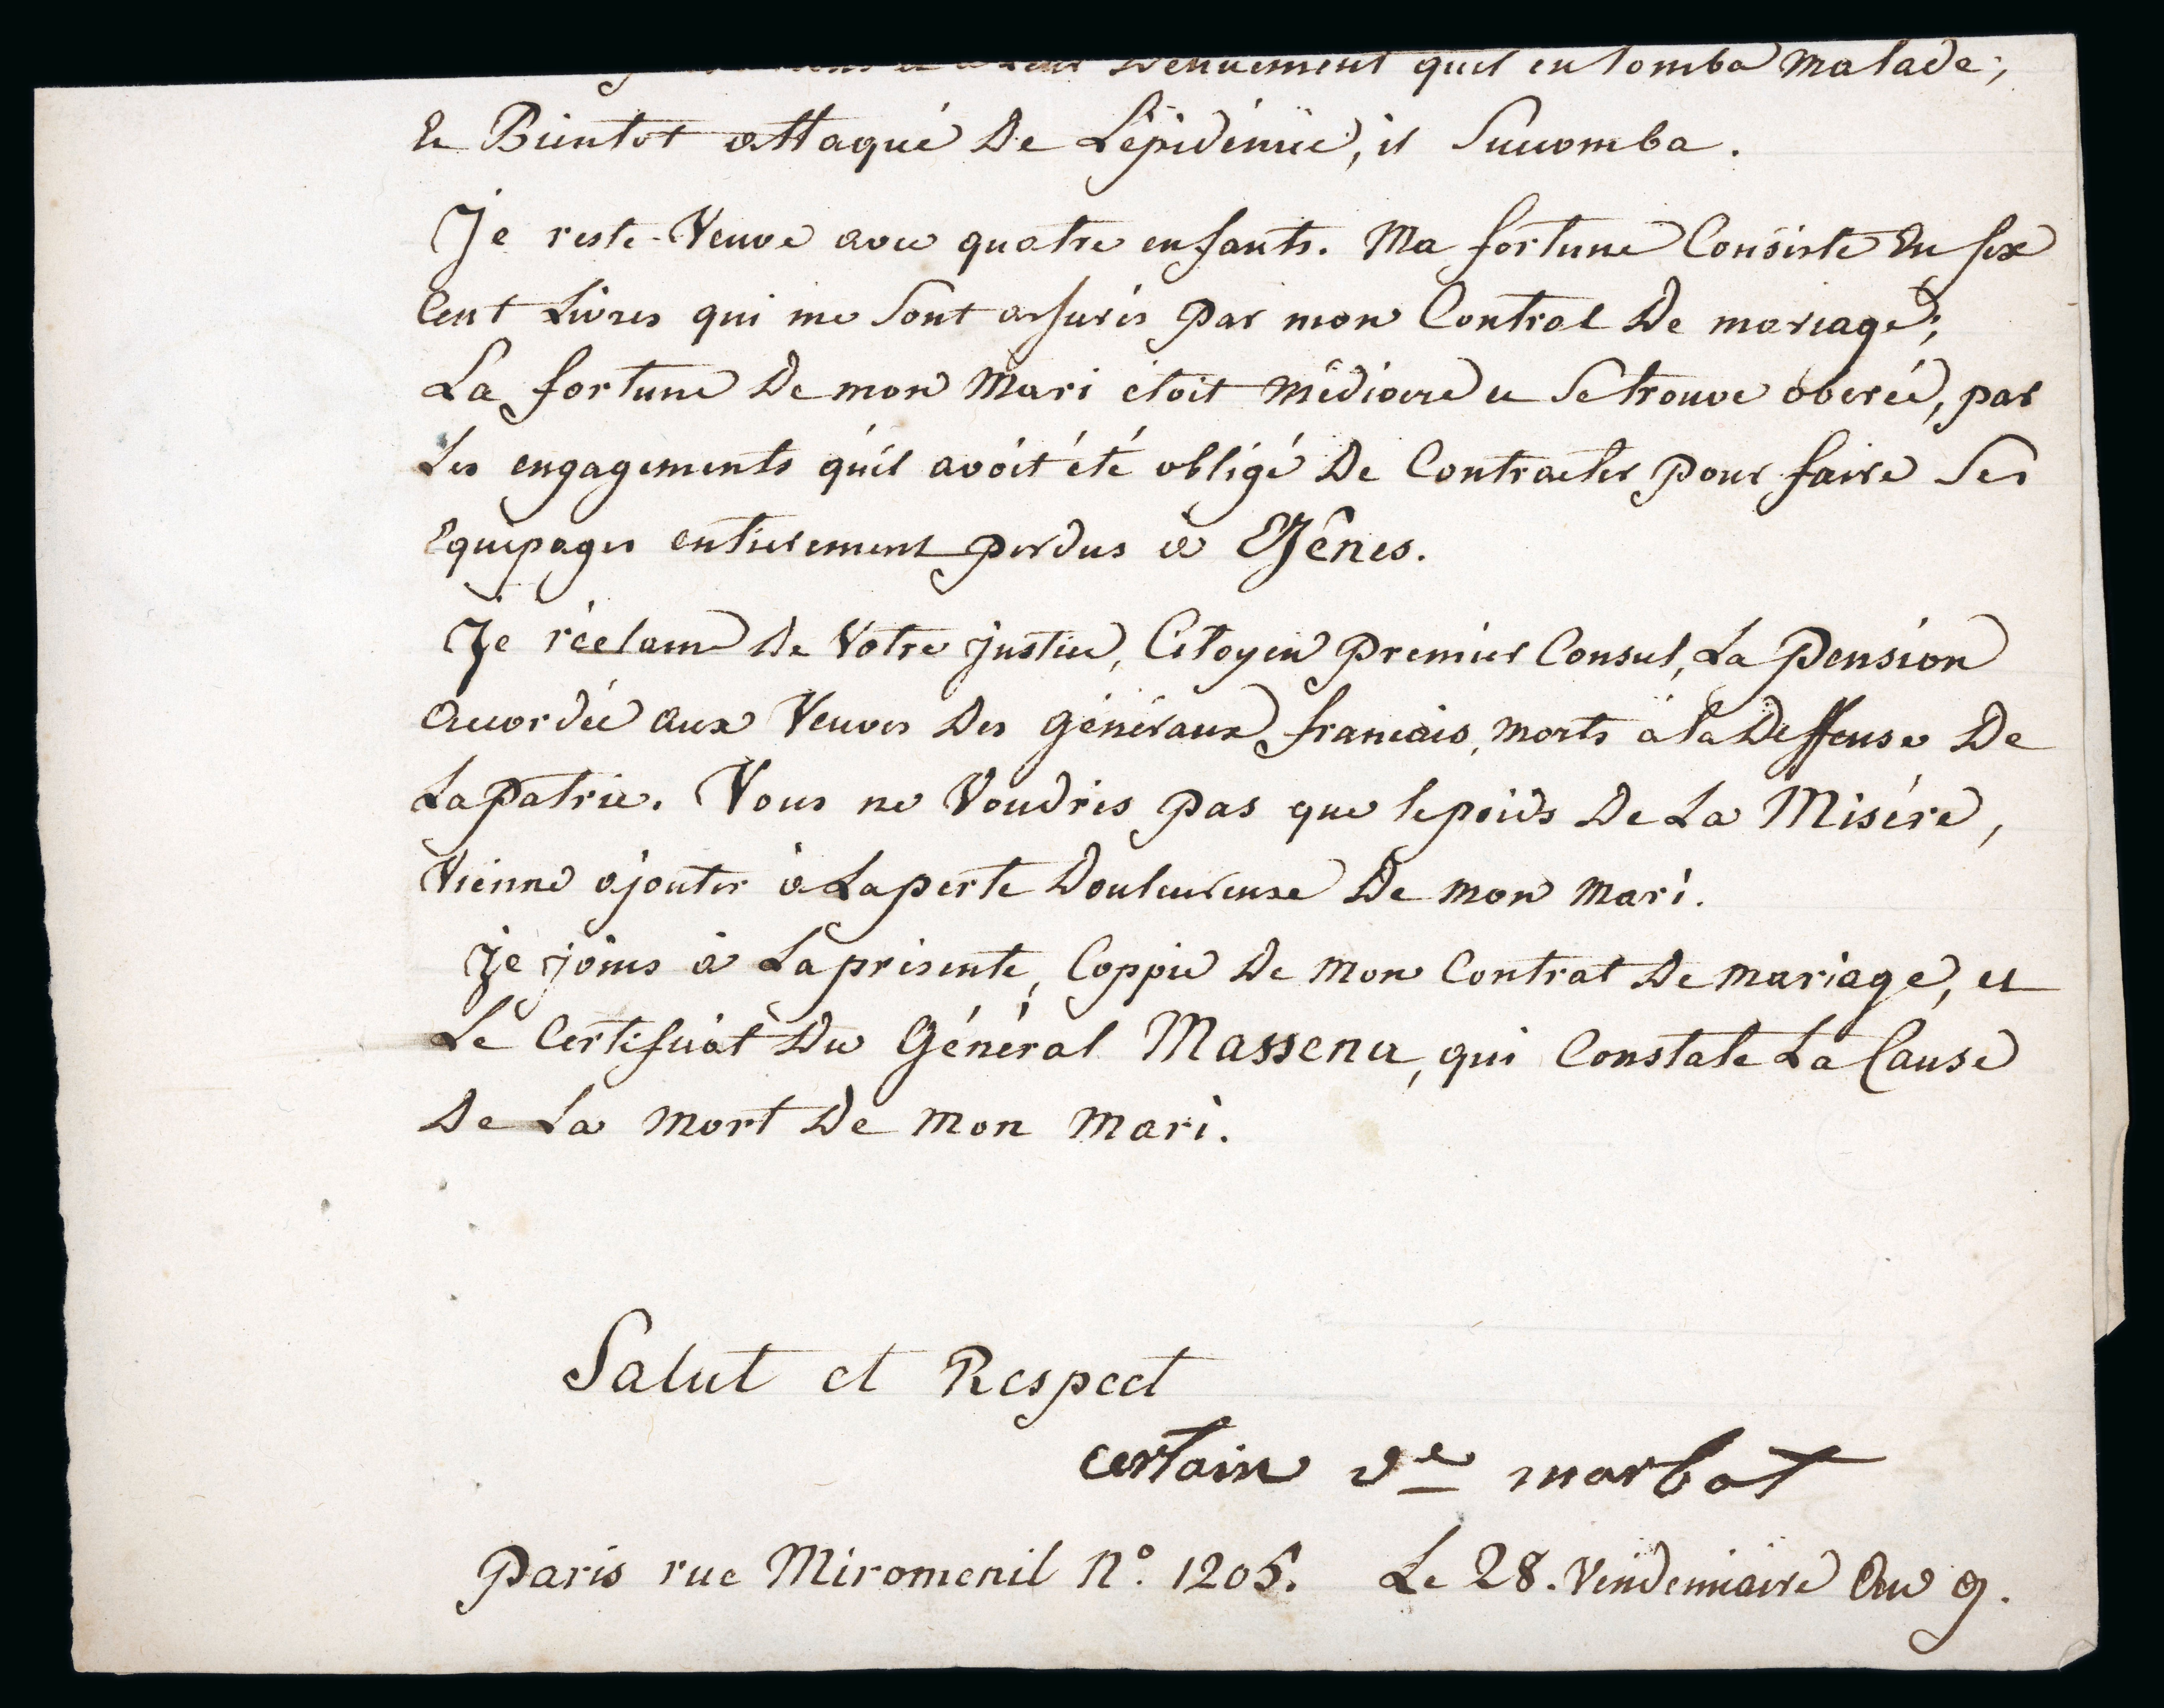 Denuement quil en tomba malade;
Et Bientot attaqué De Lépidémie, il Succomba.
Je reste Veuve avec quatre enfants. Ma fortune Consiste En six
Cent Livres qui me Sont assurés par mon Contrat De mariage;
La fortune De mon Mari étoit médiocre et Se trouve obérée, par
Les engagements qu'il avoit été obligé De Contracter pour faire Ses
Equipages entierement perdus à Gênes.
Je réclame De Votre justice, Citoyen Premier Consul, La Pension
Accordée aux Veuves Des généraux francais, morts à la Deffense De
La Patrie. Vous ne Voudrés pas que le poids De La Misére,
Vienne ajouter à La perte Douleureuse De mon Mari.
Je joins à La présente, Coppie De mon Contrat De mariage, et
Le Certificat Du Général Massena, qui Constate La Cause
De La mort De mon mari.
Salut et Respect
certain ve marbot
Paris rue Miromenil N.º 1205. Le 28. Vendemiaire An 9.